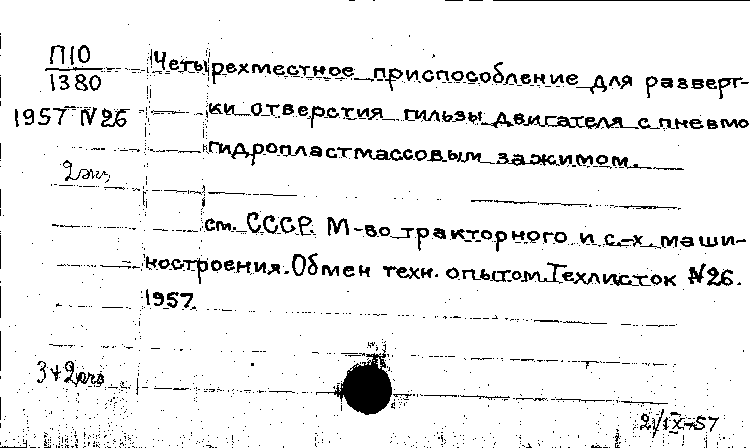 П10
1380
1957 N26
2 экз
Четырехместное приспособление для разверт-
ки отверстия гильзы двигателя с пневмо
гидропластмассовым зажимом.
см. СССР. М-во тракторного и с.-х. маши-
ностроения. Обмен техн. опытом. Техлисток №26.
1957.
3+2
21/IX-57